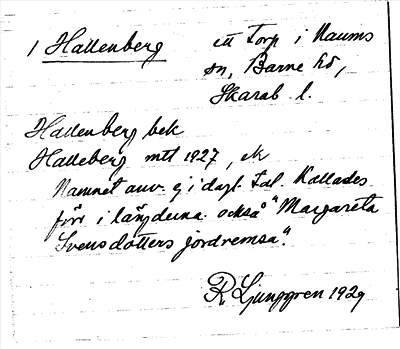 1 Hallenberg ett Torp i Naums
sn, Barne hd,
Skarab. l.
Hallenberg bek
Halleberg mtl 1927, ek
Namnet anv. ej i dagl. tal. Kallades
förr i längderna också "Margareta
Svensdotters jordremsa".
R Ljunggren 1929